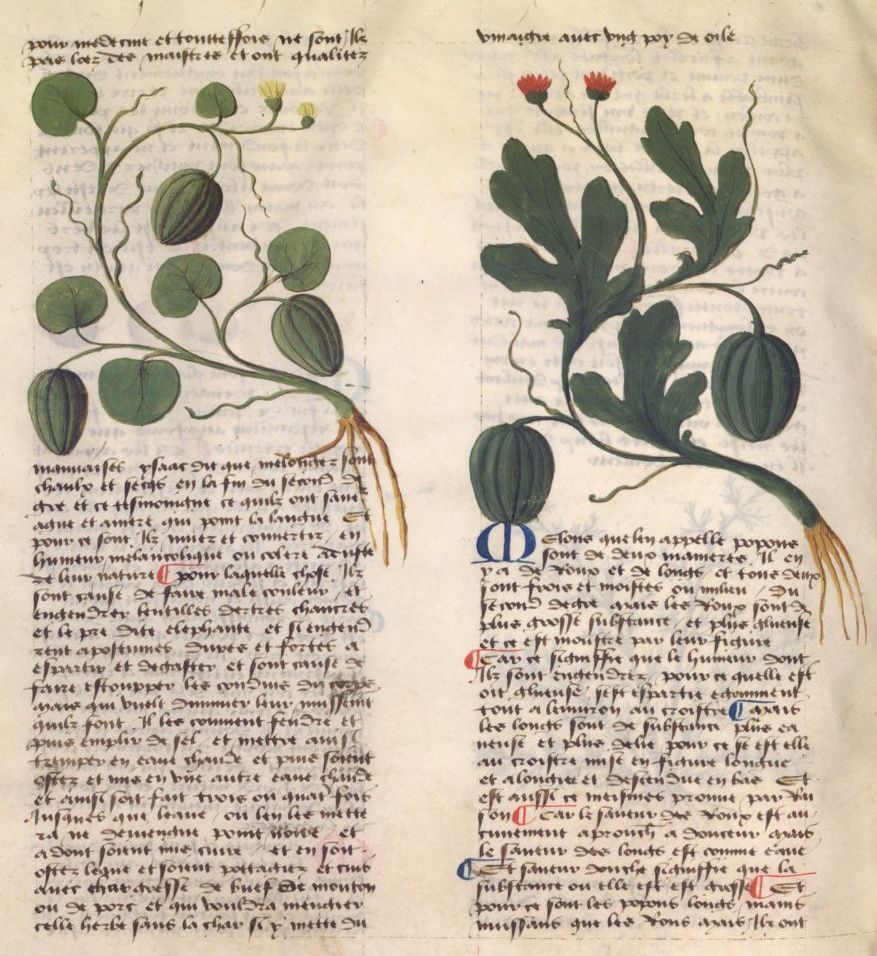 pour medecine et touteffois ne sont Ilz
pas loez des maistres et ont qualitez
mauuaises ysaac dit que melonges sont
chaulx et secqs en la fin du second de
gre et ce tesmoingne ce quilz ont saue
aque et amere qui point la langue Et
pour ce sont Ilz muez et conuertiz en
humeur melancolique ou colere aduste
de leur nature pour laquelle chose Ilz
sont cause de faire male couleur et
engendrer lentilles dertres chancres
et le pre dite elephante et si engend
rent apostumes dures et fortes a
espartir et degaster et sont cause de
faire estoupper les conduis du corps
mais qui vuelt diminuer leur nuissement
quilz font Il les conuient fendre et
puis emplir de sel et mettre ainsi
tremper en eaue chaude et puis soient
ostez et mis en vne autre eaue chaude
et ainsi soit fait trois ou quatre fois
Jusques que leaue ou len les mette
ra ne deuiengne point noire et
adont soient mis cuire et en soit
ostez leque et soient pottagiez et cuis
auec char gresse de buef de mouton
ou de porc et qui vouldra mengier
celle herbe sans la char si y mette du
vinaigre auec vng poy de oile
Melons que len appelle popons
sont de deux manieres Il en
y a de Roux et de longs et tous deux
sont frois et moistes ou milieu du
second degre mais les Roux sont de
plus grosse substance et plus gluense
et ce est monstre par leur figure
Car ce signiffie que le humeur dont
Ilz sont engendrez pour ce quelle est
oit gluense sest espartie egoument
tout a lenuiron au croistre mais
les longs sont de substance plus ea
neuse et plus delie pour ce se est elle
au croistre mise en figure longue
et alongiee et descendue en bas Et
est aussi ce meismes prouue par Rai
son Car le saueur des Roux est au
cunement aprouch a douceur mais
le saueur des longs est comme eaue
Et saueur doulche signiffie que la
substance ou elle est est grosse Et
pour ce sont les popons longs mains
nuissans que les Rons mais Ilz ont